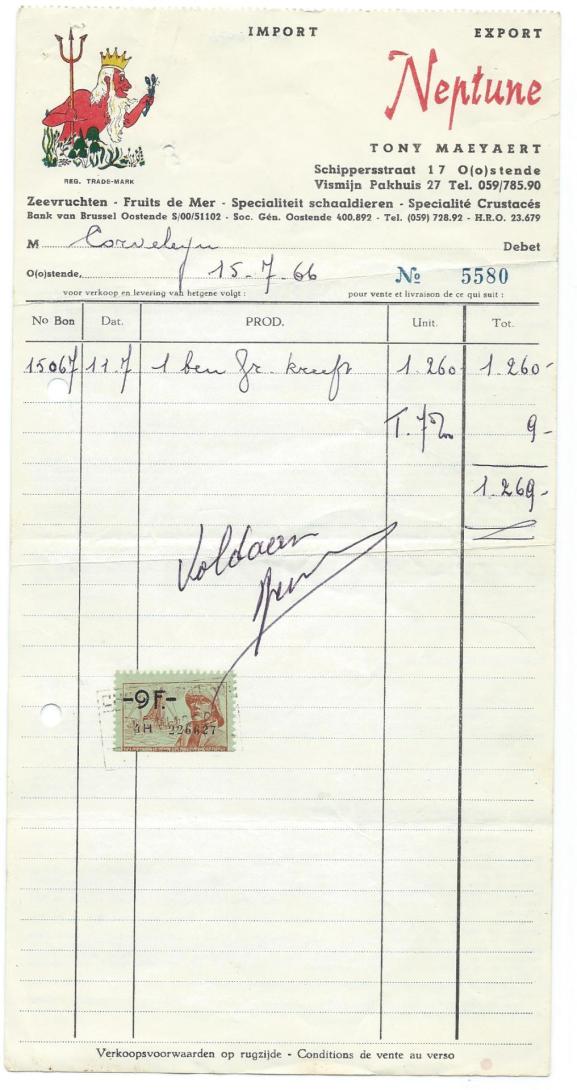 IMPORT EXPORT
Neptune
REG. TRADE-MARK
TONY MAEYAERT
Schippersstraat 17 O(o)stende
Vismijn Pakhuis 27 Tel. 059/785.90
Zeevruchten - Fruits de Mer - Specialiteit schaaldieren - Specialité Crustacés
Bank van Brussel Oostende S/00/51102 - Soc. Gén. Oostende 400.892 - Tel. (059) 728.92 - H.R.O. 23.679
M Corveleyn Debet
O(o)stende, 15-7-66 No 5580
voor verkoop en levering van hetgene volgt : pour vente et livraison de ce qui suit :
No Bon Dat. PROD. Unit. Tot.
15067 11.7 1 ben gr. kreeft 1.260 1.260-
T. 7‰ 9-
1.269-
Voldaan
-9F.-
4H 226627
Verkoopsvoorwaarden op rugzijde - Conditions de vente au verso